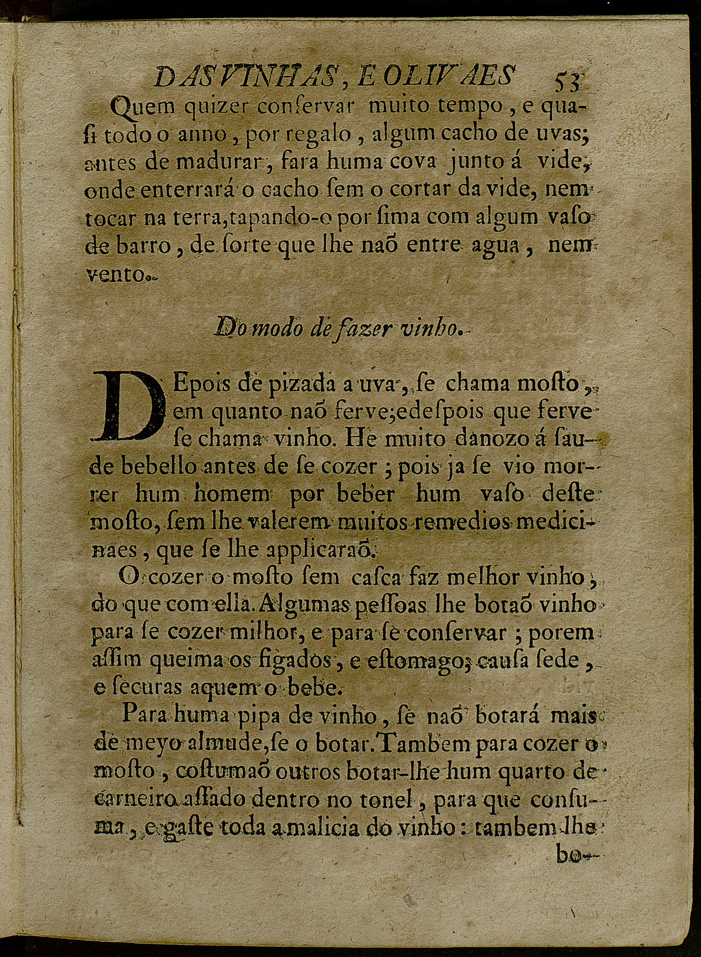 DAS VINHAS, E OLIVAES 53
Quem quizer conſervar muito tempo, e qua-
ſi todo o anno, por regalo, algum cacho de uvas;
antes de madurar, fara huma cova junto á vide,
onde enterrará o cacho ſem o cortar da vide, nem
tocar na terra, tapando-o por ſima com algum vaſo
de barro, de ſorte que lhe naõ entre agua, nem
vento.
Do modo de fazer vinho.
DEpois de pizada a uva, ſe chama moſto,
em quanto naõ ferve; e deſpois que ferve
ſe chama vinho. He muito danozo á ſau-
de bebello antes de ſe cozer; pois ja ſe vio mor-
rer hum homem por beber hum vaſo deſte
moſto, ſem lhe valerem muitos remedios medici-
naes, que ſe lhe applicaraõ.
O cozer o moſto ſem caſca faz melhor vinho,
do que com ella. Algumas peſſoas lhe botaõ vinho
para ſe cozer milhor, e para ſe conſervar; porem
aſſim queima os figados, e eſtomago; cauſa ſede,
e ſecuras aquem o bebe.
Para huma pipa de vinho, ſe naõ botará mais
de meyo almude, ſe o botar. Tambem para cozer o
moſto, coſtumaõ outros botar-lhe hum quarto de
carneiro aſſado dentro no tonel, para que conſu-
ma, e gaſte toda a malicia do vinho: tambem lhe
bo-